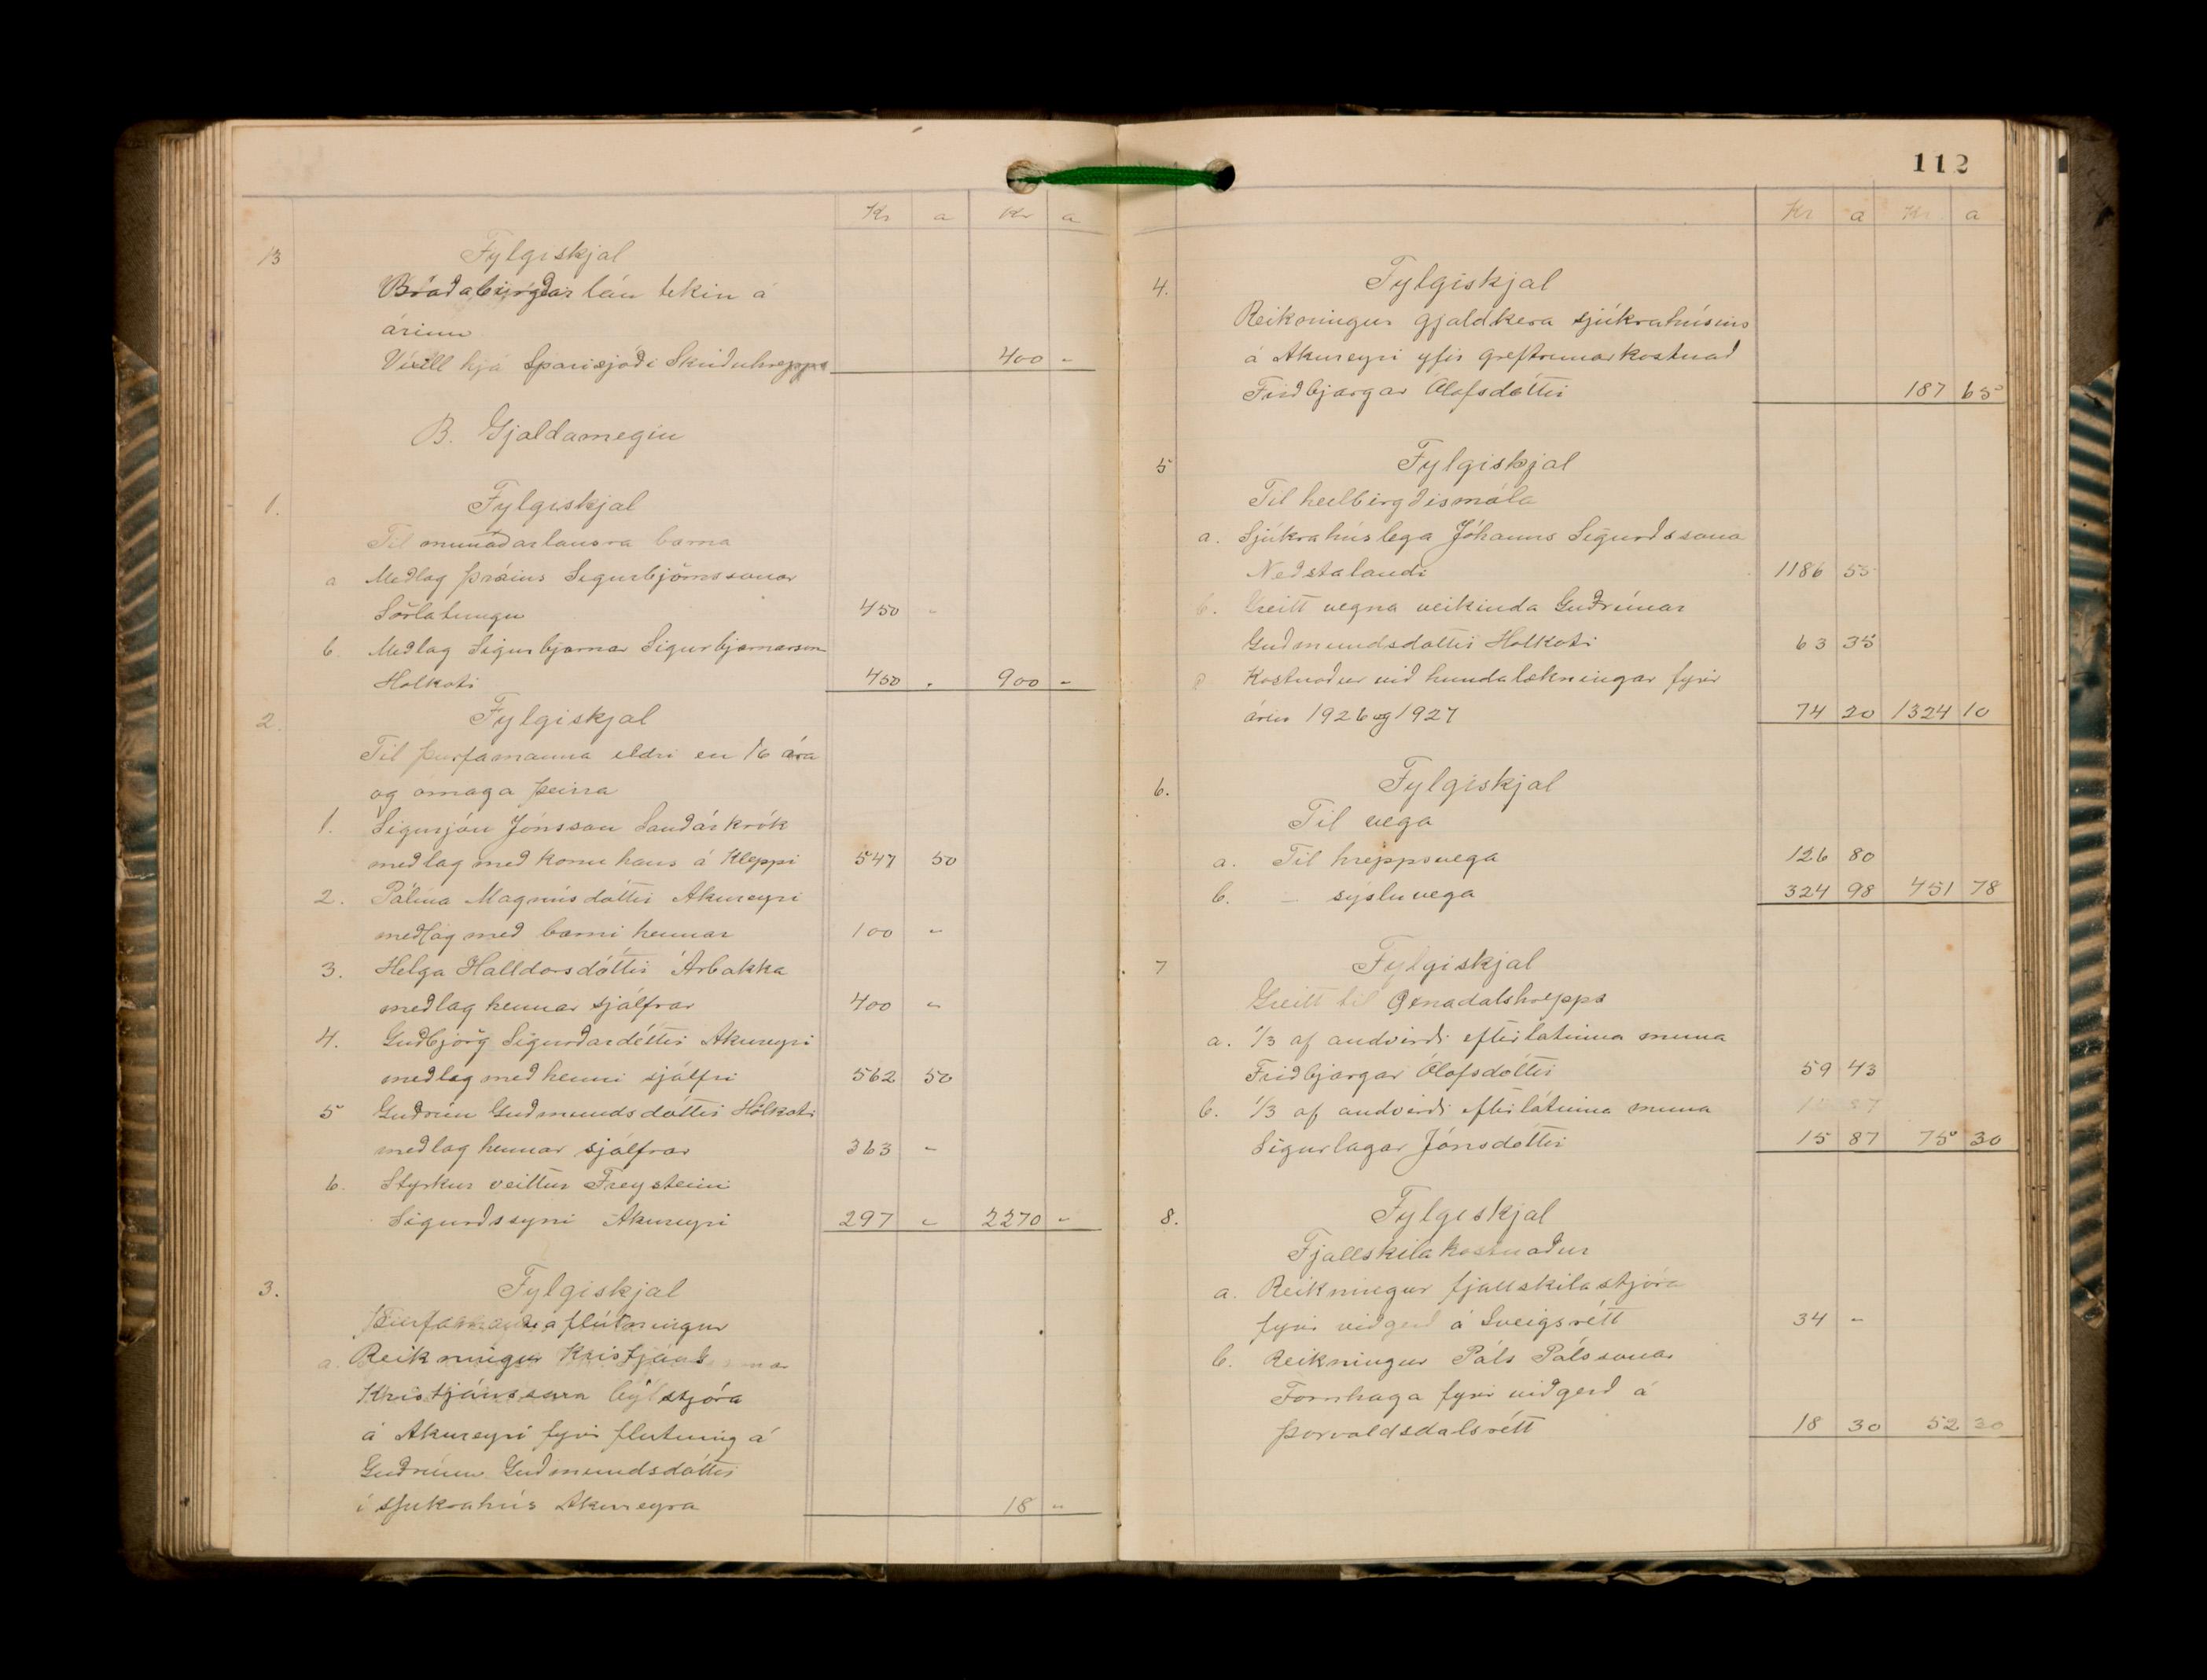 Kr a Kr a
13 Fylgiskjal
Bráðabirgðarlán tekin á
árinu
Víxill hjá Sparisjóði Skriðuhrepps 400 -
B. Gjaldamegin
1. Fylgiskjal
Til munaðarlausra barna
a Meðlag Þráins Sigurbjörnssonar
Sörlatungu 450 -
b Meðlag Sigurbjarnar Sigurbjarnarson
Hólkoti 450 - 900 -
2. Fylgiskjal
Til þurfamanna eldri en 16 ára
og ómaga þeirra
1. Sigurjón Jónsson Sauðárkrók
meðlag með konu hans á Kleppi 547 50
2. Pálína Magnúsdóttir Akureyri
meðlag með barni hennar 100 -
3. Helga Halldórsdóttir Árbakka
meðlag hennar sjálfrar 400 -
4. Guðbjörg Sigurðardóttir Akureyri
meðlag með henni sjálfri 562 50
5 Guðrún Guðmundsdóttir Hólkoti
meðlag hennar sjálfrar 363 -
6. Styrkur veittur Freysteini
Sigurðssyni Akureyri 297 - 2270 -
3. Fylgiskjal
Þurfamannaflutningur
a. Reikningur Kristjáns
Kristjánssonar bílstjóra
á Akureyri fyrir flutning á
Guðrúnu Guðmundsdóttir
í sjúkrahús Akureyra 18 -
112
Kr a Kr a
4. Fylgiskjal
Reikningur gjaldkera sjúkrahúsins
á Akureyri yfir greftrunarkostnað
Friðbjargar Ólafsdóttir 187 65
5 Fylgiskjal
Til heilbirgðismála
a. Sjúkrahúslega Jóhanns Sigurðssona
Neðstalandi 1186 55
b. Greitt vegna veikinda Guðrúnar
Guðmundsdóttir Hólkoti 63 35
c Kostnaður við hundalækningar fyrir
árin 1926 og 1927 74 20 1324 10
6. Fylgiskjal
Til vega
a. Til hreppsvega 126 80
b. - sýsluvega 324 98 451 78
7 Fylgiskjal
Greitt til Öxnadalshrepps
a. 1/3 af andvirði eftirlátinna muna
Friðbjargar Ólafsdóttir 59 43
b. 1/3 af andvirði eftirlátinna muna
Sigurlagar Jónsdóttir 15 87 75 30
8. Fylgiskjal
Fjallskilakostnaður
a. Reikningur fjallskilastjóra
fyrir viðgerð á Sveigsrétt 34 -
b. Reikningur Páls Pálssonar
Fornhaga fyrir viðgerð á
Þorvaldsdalsrétt 18 30 52 30